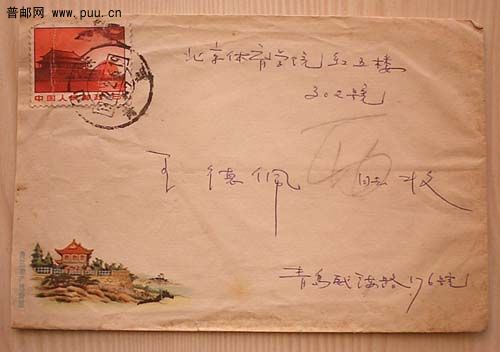 普邮网
www.puu.cn
中国人民邮政
北京体育学院红五楼
302号
王德佩 同志收
青岛
176号